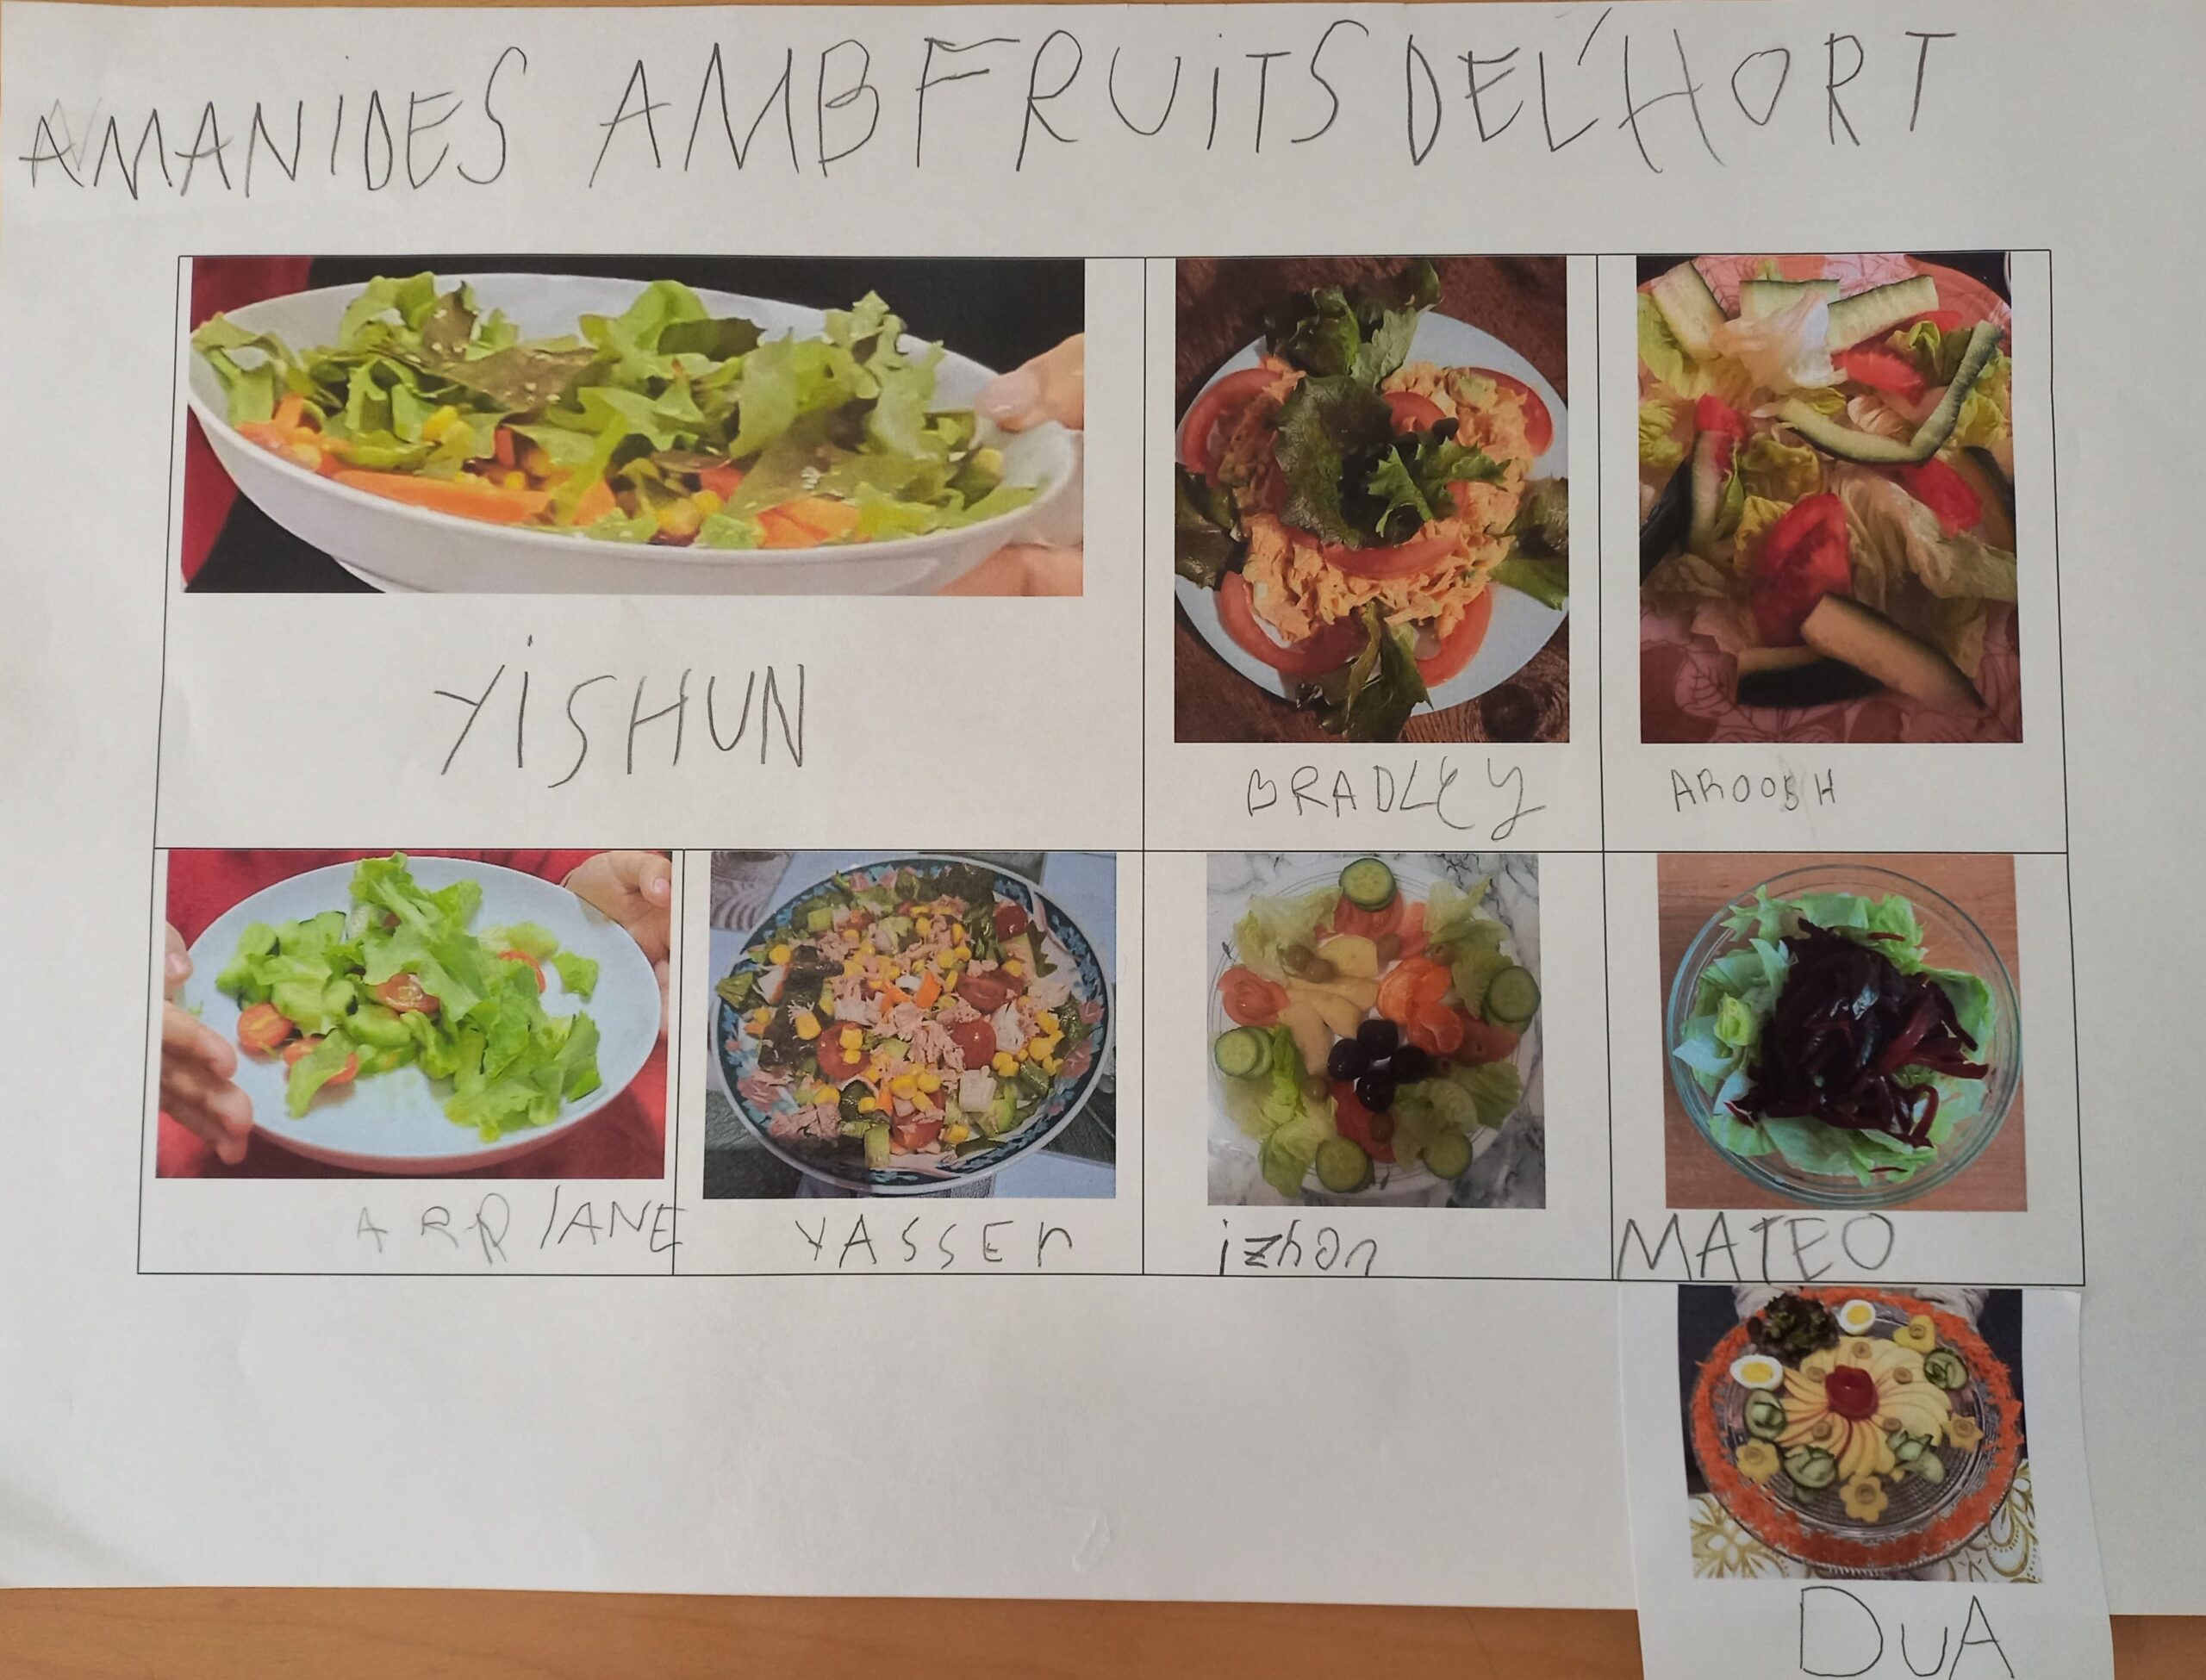 AMANIDES AMB FRUITS DE L'HORT
YiSHUN
BRADLEY
AROOSH
ARRIANE
YASSEn
izhan
MATEO
DuA